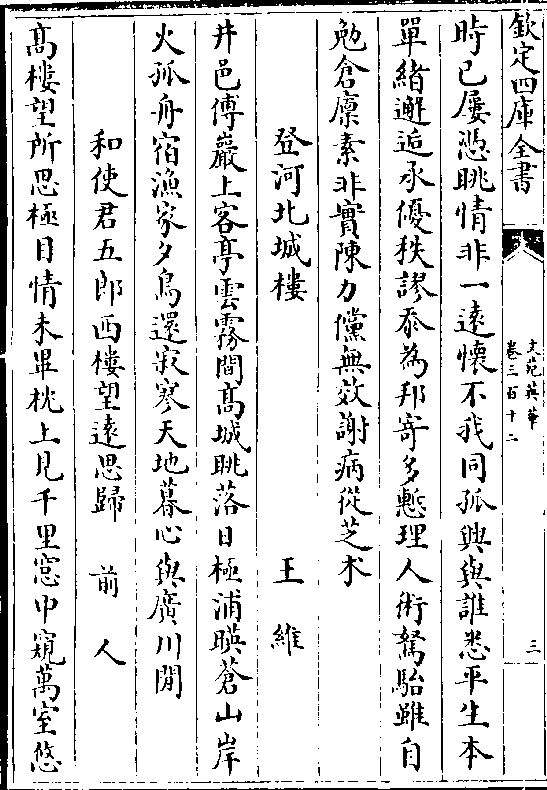 欽定四庫全書
文苑英華
卷三百十二
三
時已屢憑眺情非一遠懷不我同孤興與誰悉平生本
單緒邂逅承優秩謬忝為邦寄多慙理人術駑駘雖自
勉倉廩素非實陳力儻無效謝病從芝朮
登河北城樓 王維
井邑傅巖上客亭雲霧間髙城眺落日極浦暎蒼山岸
火孤舟宿漁家夕鳥還寂寒天地暮心與廣川閒
和使君五郎西樓望遠思歸 前人
髙樓望所思極目情未畢枕上見千里窓中窺萬室悠